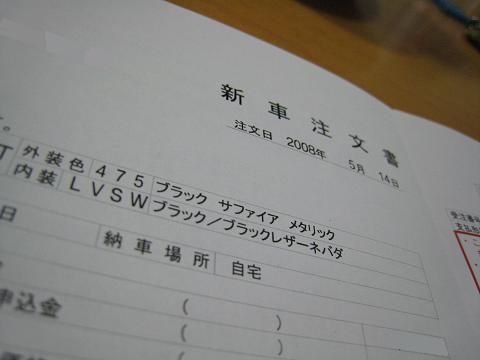 新車注文書
注文日 2008年 5月 14日
。
外装色 475 ブラック サファイア メタリック
内装 LVSW ブラック/ブラックレザーネバダ
日
納車場所 自宅
申込金 ( )
( )